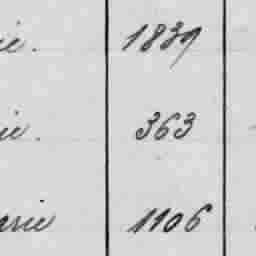 ie. 1839
ie. 363
arie 1106